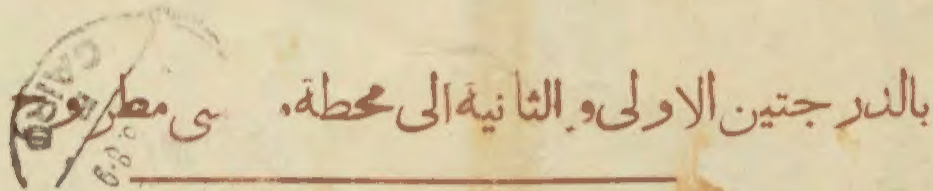 بالدرجتين الاولى والثانية الى محطة. سى مطروح
CAIRO